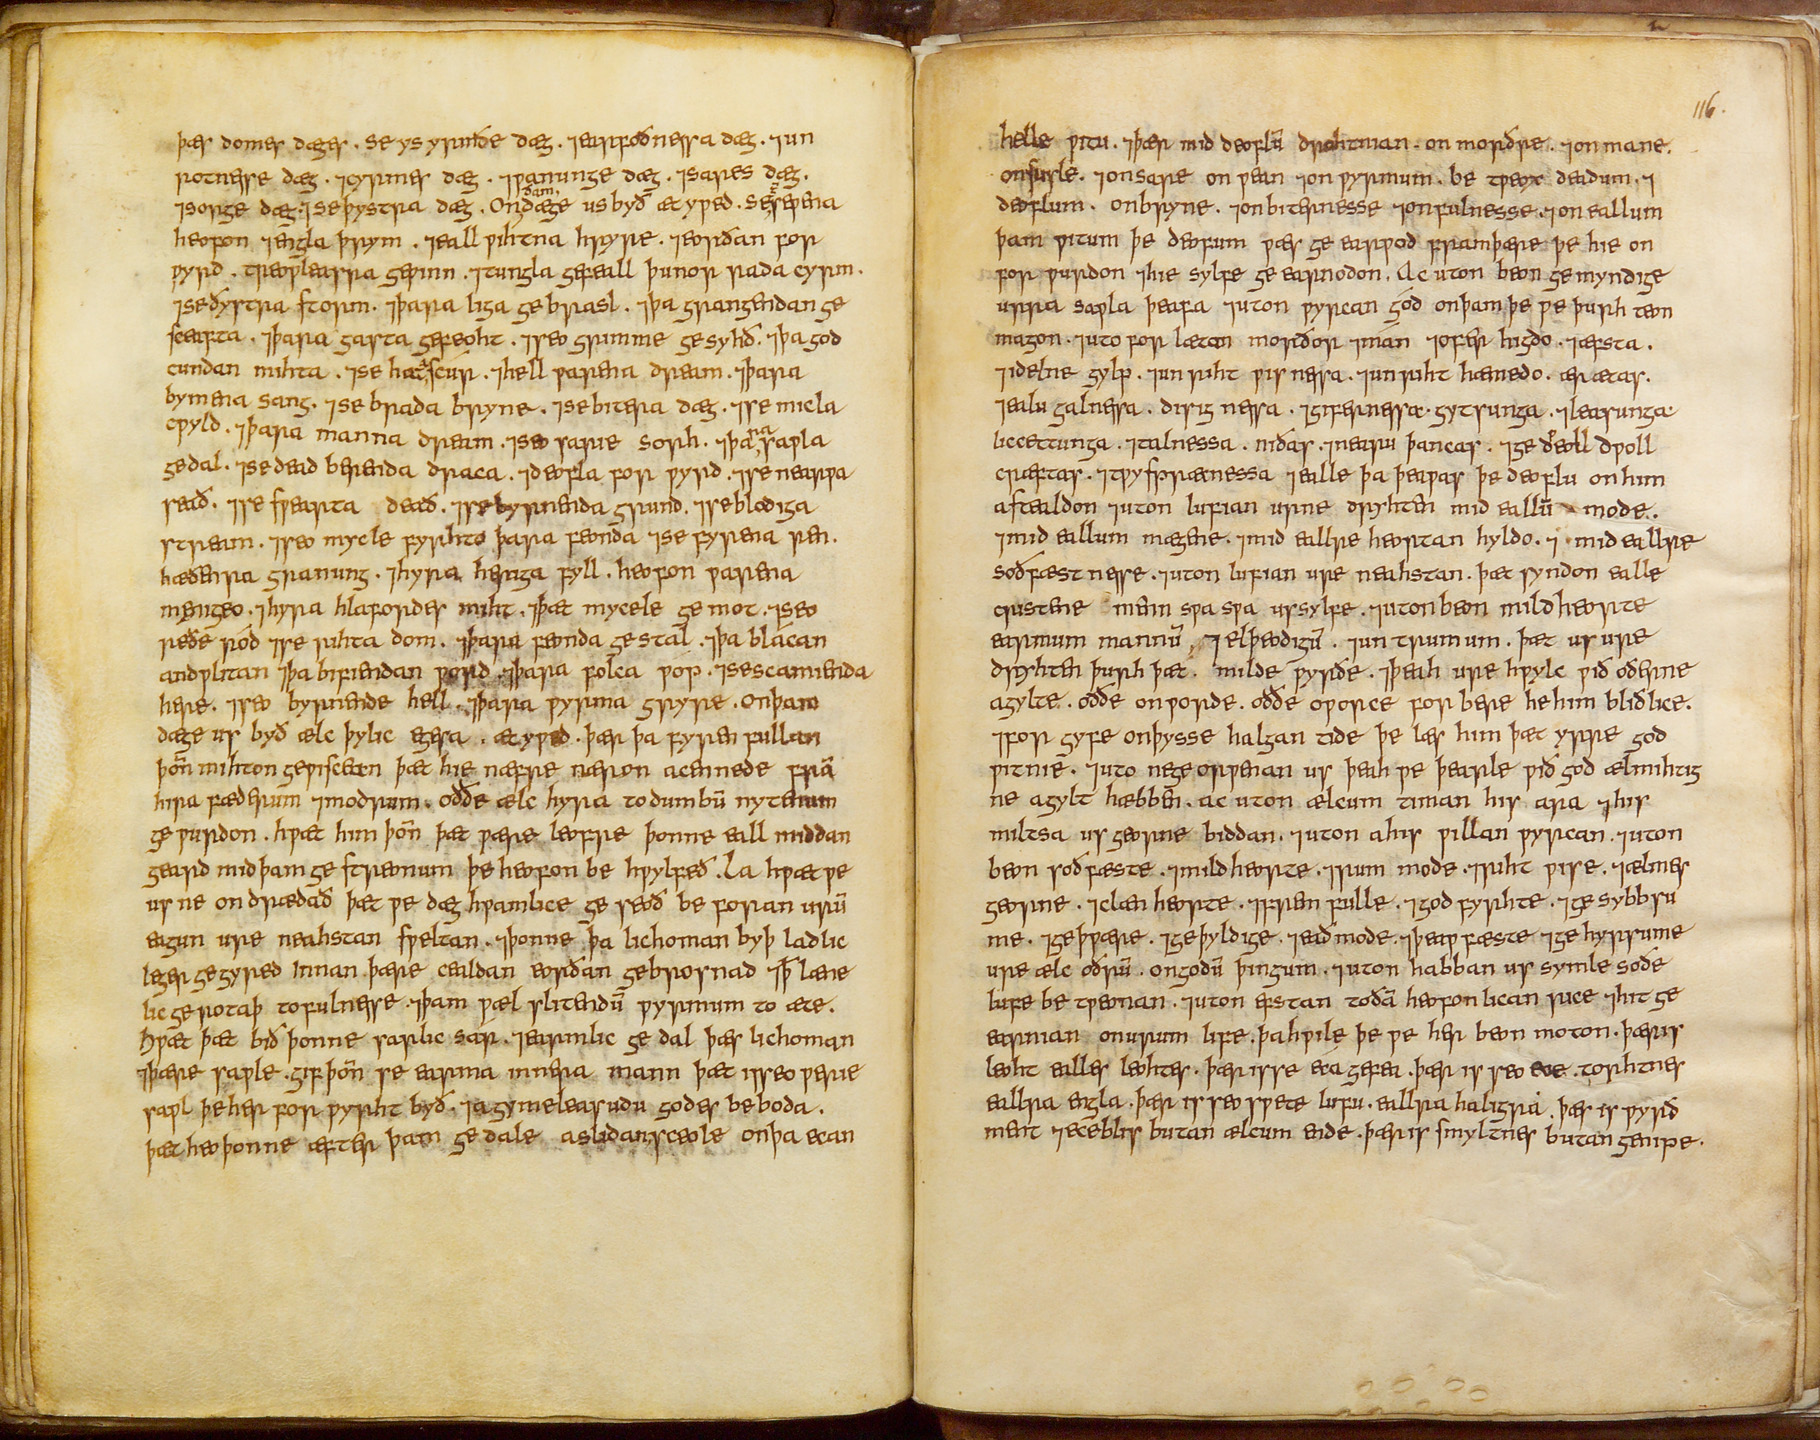 þæs domes dæges . se ys yrmðe dæg . ⁊ earfoðnessa dæg . ⁊ un
rotnesse dæg . ⁊ cyrmes dæg . ⁊ ƿanunge dæg . ⁊ sares dæg .
⁊ sorge dæg . ⁊ se þystra dæg . On ðam dæge us byð ætyƿed . se
heofon ⁊ engla þrym . ⁊ eall ƿihtna hryre . ⁊ eorðan for
ƿyrd . treoƿleasra geƿinn . ⁊ tungla gefeall þunor rada cyrm .
⁊ se ðystra storm . ⁊ þara liga gebrasl . ⁊ þa grangendan ge
sceafta . ⁊ þara gasta gefeoht . ⁊ seo grimme gesyhð . ⁊ þa god
cundan mihta . ⁊ se hata scur . ⁊ hell ƿarena dream . ⁊ þara
bymena sang . ⁊ se brada bryne . ⁊ se bitera dæg . ⁊ se micla
cƿyld . ⁊ þara manna dream . ⁊ seo sarie sorh . ⁊ þara saƿla
gedal . ⁊ se deað berenda draca . ⁊ deofla for ƿyrd . ⁊ se nearƿa
seað . ⁊ se sƿearta deað . ⁊ se byrnenda grund . ⁊ se blodiga
stream . ⁊ seo mycle fyrhto þara feonda ⁊ se fyrena ren .
hæðenra granung . ⁊ hyra heriga fyll . heofon ƿarena
mengeo . ⁊ hyra hlafordes miht . ⁊ þæt mycele gemot . ⁊ seo
reðe rod ⁊ se rihta dom . ⁊ þara feonda gestal . ⁊ þa blacan
andƿlitan ⁊ þa bifiendan ƿord . ⁊ þara folca ƿop . ⁊ se scamienda
here . ⁊ seo byrnende hell . ⁊ þara ƿyrma gryre . On þam
dæge us byð ælc þylic egesa . ætyƿed . þær þa fyren fullan
þoñ mihton geƿiscean þæt hie næfre næron acennede frã
hira fæderum ⁊ modrum . oððe ælc hyra to dumbũ nytenum
ge ƿurdon . hƿæt him þoñ þæt ƿære leofre þonne eall middan
geard mid þam gestreonum þe heofon be hƿylfeð . La hƿæt ƿe
us ne ondrædað þæt ƿe dæg hƿamlice ge seoð be foran urũ
eagun ure neahstan sƿeltan . ⁊ þonne þa lichoman byþ ladlic
leger gegyred Innan þære cealdan eorðan gebrosnad ⁊ þ læne
lic gerotaþ to fulnesse . ⁊ þam ƿæl slitendũ ƿyrmum to æte .
Hƿæt þæt bið þonne sarlic sar . ⁊ earmlic ge dal þæs lichoman
⁊ þære saƿle . gif þoñ se earma innera mann þæt is seo ƿerie
saƿl þe her for ƿyrht byð . ⁊ agymeleasudu godes beboda .
þæt heo þonne æfter þam gedale aslidan sceole on þa ecan
116.
helle ƿitu . ⁊ þær mid deoflũ drohtnian . on morðre . ⁊ on mane .
on susle . ⁊ on sare on ƿean ⁊ on ƿyrmum . be tƿeox deadum . ⁊
deoflum . on bryne . ⁊ on biternesse ⁊ on fulnesse . ⁊ on eallum
þam ƿitum þe deofum ƿæs ge earƿod fram þære þe hie on
for ƿurdon ⁊ hie sylfe ge earnodon . Ac uton beon gemyndige
urra saƿla þearfa ⁊ uton ƿyrcan god on þam þe ƿe þurh teon
magon . ⁊ uto for lætan morðor ⁊ man ⁊ ofer higdo . ⁊ æfsta .
⁊ idelne gylp . ⁊ un riht ƿisnessa . ⁊ unriht hæmedo . ær ætas .
⁊ ealu galnessa . disig nessa . ⁊ gifernessæ . gytsunga . ⁊ leasunga
licettunga . ⁊ talnessa . niðas . ⁊ nearu þancas . ⁊ ge dƿoll
cræftas . ⁊ tƿyspræcnessa ⁊ ealle þa þeaƿas þe deoflu on him
astealdon ⁊ uton lufian urne dryhten mid eallũ mode .
⁊ mid eallum mægene . ⁊ mid eallre heortan hyldo . ⁊ mid eallre
soðfæstnesse . ⁊ uton lufian ure neahstan . þæt syndon ealle
cristene menn sƿa sƿa us sylfe . ⁊ uton beon mildheorte
earmum mannũ ⁊ elþeodigũ . ⁊ untrumum . þæt us ure
dryhten þurh þæt . milde ƿyrðe . ⁊ þeah ure hƿylc ƿið oðerne
agylte . oððe on ƿorde . oððe oƿorce for bere he him bliðlice .
⁊ for gyfe on þysse halgan tide þe læs him þæt yrre god
ƿitnie . ⁊ uto ne georƿenan us þeah ƿe þearle ƿið god ælmihtig
ne agylt hæbben . ac uton ælcum timan his ara ⁊ his
miltsa us georne biddan . ⁊ uton a his ƿillan ƿyrcan . ⁊ uton
beon soðfæste . ⁊ mildheorte . ⁊ rum mode . ⁊ riht ƿise . ⁊ ælmes
georne . ⁊ clæn heorte . ⁊ frem fulle . ⁊ godfyrhte . ⁊ gesybbsu
me . ⁊ geþƿære . ⁊ geþyldige . ⁊ eað mode . ⁊ þeaƿ fæste ⁊ gehyrsume
ure ælc oðrũ . on godũ þingum . ⁊ uton habban us symle soðe
lufe betƿeonan . ⁊ uton efstan to ðã heofonlican rice ⁊ hit ge
earnian on urum life . þa hƿile þe ƿe her beon moton . þær is
leoht ealles leohtes . þær is se eca gefea . þær is seo ece . torhtnes
ealra engla . þær is seo sƿete lufu . ealra haligra . þær is ƿyrð
ment ⁊ ece blis butan ælcum ende . þær is smyltnes butan genipe .